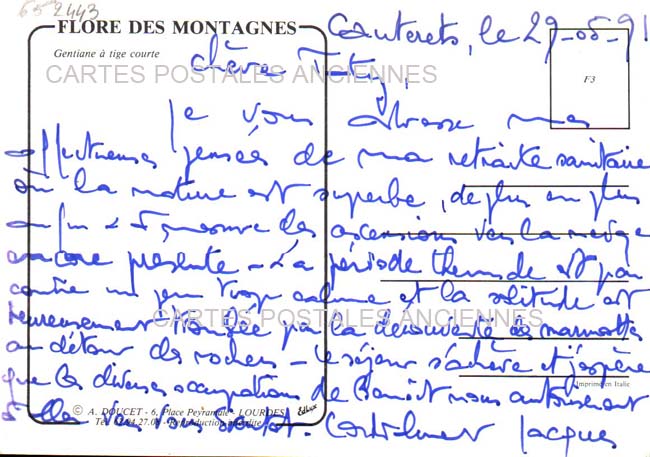 652443
FLORE DES MONTAGNES
Cauterets, le 29-05-91
Gentiane à tige courte
chère
CARTES POSTALES ANCIENNES
F3
Je vous adresse mes
affectueuses pensées de ma retraite sanitaire
où la nature est superbe, de plus en plus
au fur et à mesure des ascensions vers la neige
encore présente - La période thermale est par
contre un peu trop calme et la solitude est
CARTES POSTALES ANCIENNES
heureusement troublée par la découverte de marmottes
au détour des rochers - Le séjour s'achève et j'espère
Imprimé en Italie
que les diverses occupations de Benoit nous autoriseront
© A. DOUCET - 6, Place Peyramale - LOURDES
à aller vous voir bientôt. Cordialement Jacques
Reproduction interdite